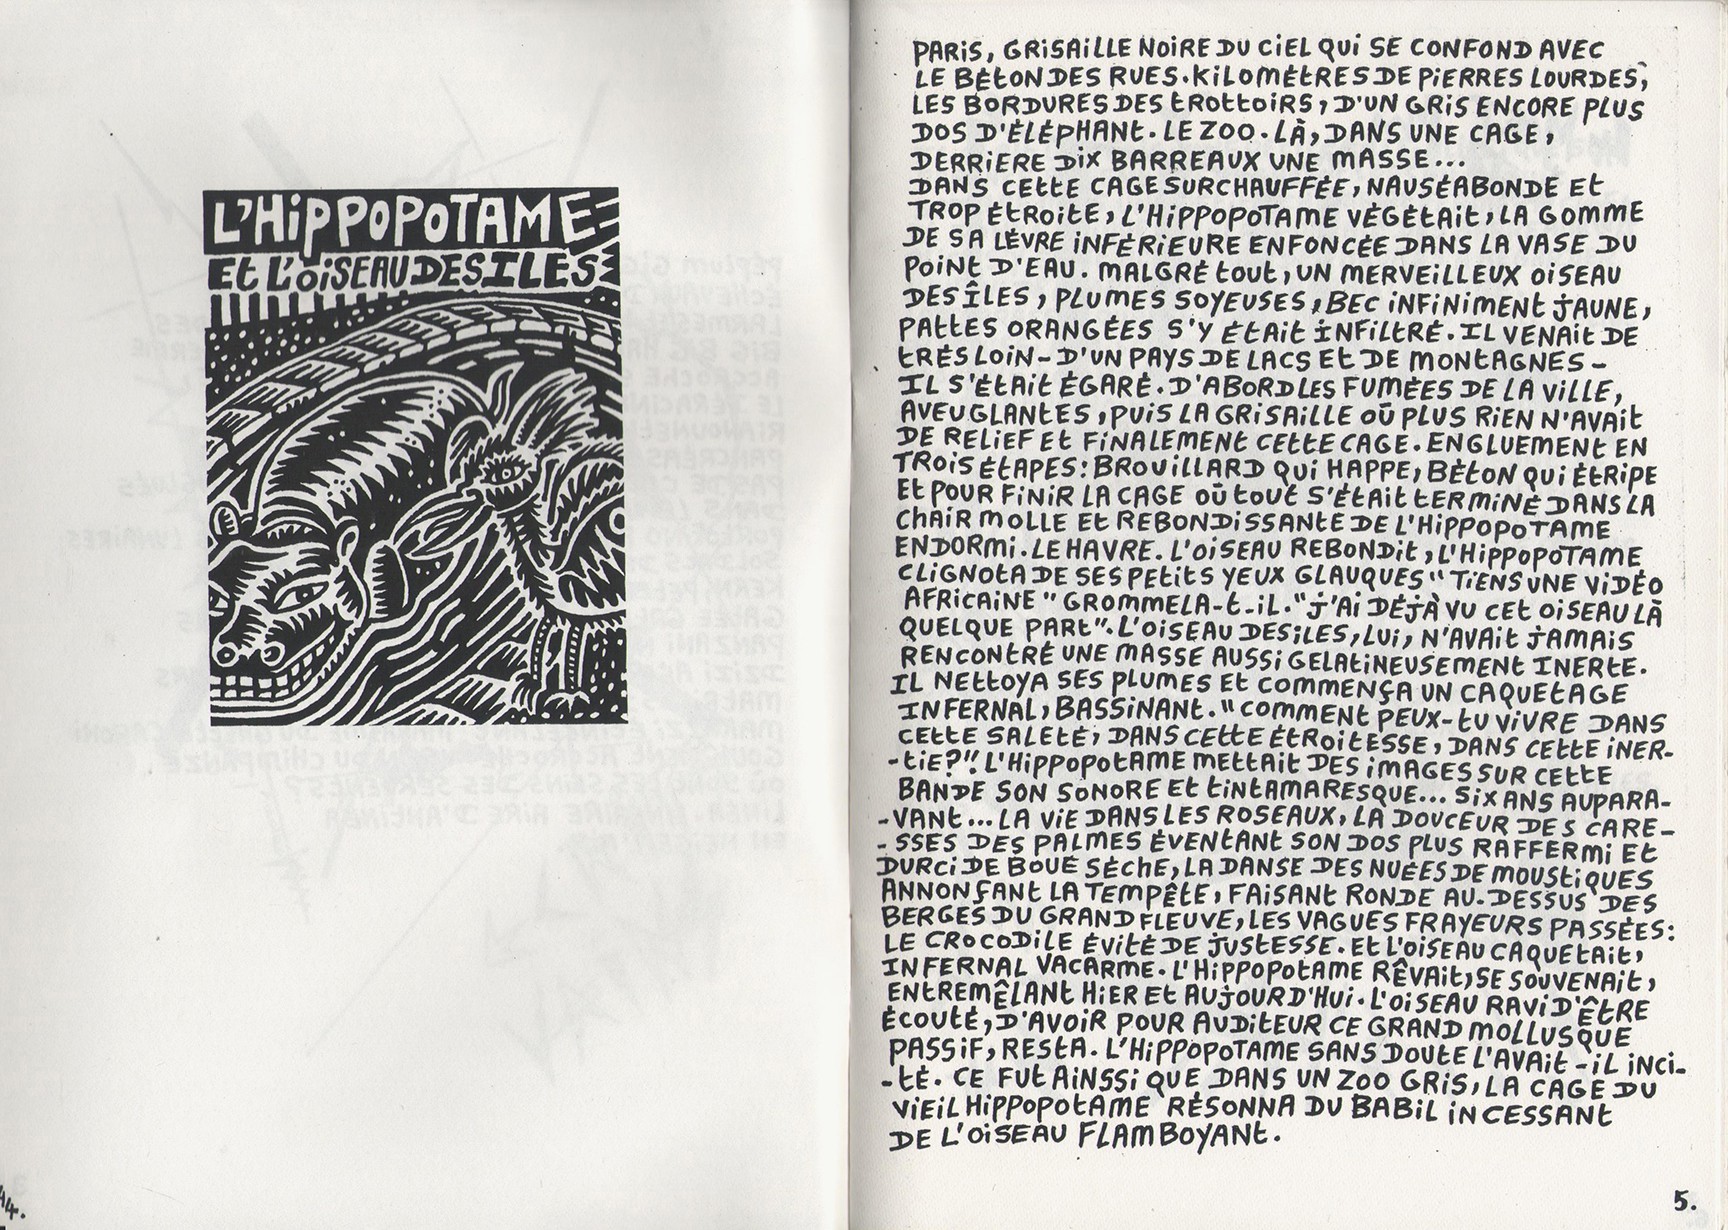 L'HiPPOPOTAME
Et L'OiSEAU DES ILES
44.
PARIS, GRISAILLE NOIRE DU CIEL QUI SE CONFOND AVEC
LE BÉTON DES RUES. KILOMÈTRES DE PIERRES LOURDES,
LES BORDURES DES TROTTOIRS, D'UN GRIS ENCORE PLUS
DOS D'ÉLÉPHANT. LE ZOO. LÀ, DANS UNE CAGE,
DERRIERE DIX BARREAUX UNE MASSE...
DANS CETTE CAGE SURCHAUFFÉE, NAUSÉABONDE ET
TROP ÉTROITE, L'HIPPOPOTAME VÉGÉTAIT, LA GOMME
DE SA LÈVRE INFÉRIEURE ENFONCÉE DANS LA VASE DU
POINT D'EAU. MALGRÉ TOUT, UN MERVEILLEUX OISEAU
DES ÎLES, PLUMES SOYEUSES, BEC INFINIMENT JAUNE,
PATTES ORANGÉES S'Y ÉTAIT INFILTRÉ. IL VENAIT DE
TRÈS LOIN - D'UN PAYS DE LACS ET DE MONTAGNES -
IL S'ÉTAIT ÉGARÉ. D'ABORD LES FUMÉES DE LA VILLE,
AVEUGLANTES, PUIS LA GRISAILLE OÙ PLUS RIEN N'AVAIT
DE RELIEF ET FINALEMENT CETTE CAGE. ENGLUEMENT EN
TROIS ÉTAPES: BROUILLARD QUI HAPPE, BÉTON QUI ÉTRIPE
ET POUR FINIR LA CAGE OÙ TOUT S'ÉTAIT TERMINÉ DANS LA
CHAIR MOLLE ET REBONDISSANTE DE L'HIPPOPOTAME
ENDORMI. LE HAVRE. L'OISEAU REBONDIT, L'HIPPOPOTAME
CLIGNOTA DE SES PETITS YEUX GLAUQUES "TIENS UNE VIDÉO
AFRICAINE" GROMMELA-T-IL. "J'AI DÉJÀ VU CET OISEAU LÀ
QUELQUE PART". L'OISEAU DES ILES, LUI, N'AVAIT JAMAIS
RENCONTRÉ UNE MASSE AUSSI GELATINEUSEMENT INERTE.
IL NETTOYA SES PLUMES ET COMMENÇA UN CAQUETAGE
INFERNAL, BASSINANT. "COMMENT PEUX-TU VIVRE DANS
CETTE SALETÉ, DANS CETTE ÉTROITESSE, DANS CETTE INER-
-TIE?". L'HIPPOPOTAME METTAIT DES IMAGES SUR CETTE
BANDE SON SONORE ET TINTAMARESQUE... SIX ANS AUPARA-
-VANT... LA VIE DANS LES ROSEAUX, LA DOUCEUR DES CARE-
-SSES DES PALMES ÉVENTANT SON DOS PLUS RAFFERMI ET
DURCI DE BOUE SÈCHE, LA DANSE DES NUÉES DE MOUSTIQUES
ANNONÇANT LA TEMPÊTE, FAISANT RONDE AU-DESSUS DES
BERGES DU GRAND FLEUVE, LES VAGUES FRAYEURS PASSÉES:
LE CROCODILE ÉVITÉ DE JUSTESSE. ET L'OISEAU CAQUETAIT,
INFERNAL VACARME. L'HIPPOPOTAME RÊVAIT, SE SOUVENAIT,
ENTREMÊLANT HIER ET AUJOURD'HUI. L'OISEAU RAVI D'ÊTRE
ÉCOUTÉ, D'AVOIR POUR AUDITEUR CE GRAND MOLLUSQUE
PASSIF, RESTA. L'HIPPOPOTAME SANS DOUTE L'AVAIT-IL INCI-
-TÉ. CE FUT AINSSI QUE DANS UN ZOO GRIS, LA CAGE DU
VIEIL HIPPOPOTAME RÉSONNA DU BABIL INCESSANT
DE L'OISEAU FLAMBOYANT.
5.